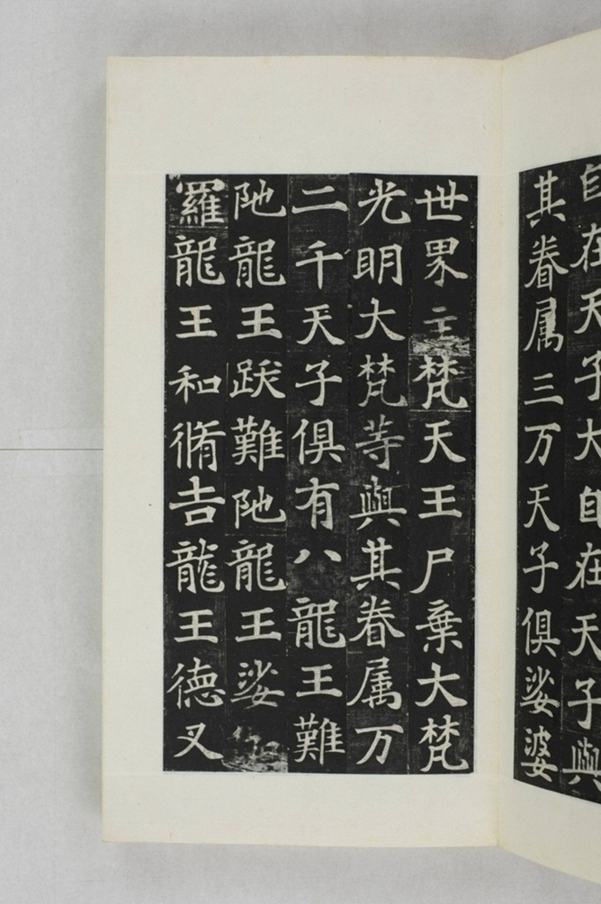 自在天子大自在天子與
其眷属三万天子俱娑婆
世界主梵天王尸棄大梵
光明大梵等與其眷属万
二千天子俱有八龍王難
陁龍王跋難陁龍王娑
羅龍王和脩吉龍王德叉